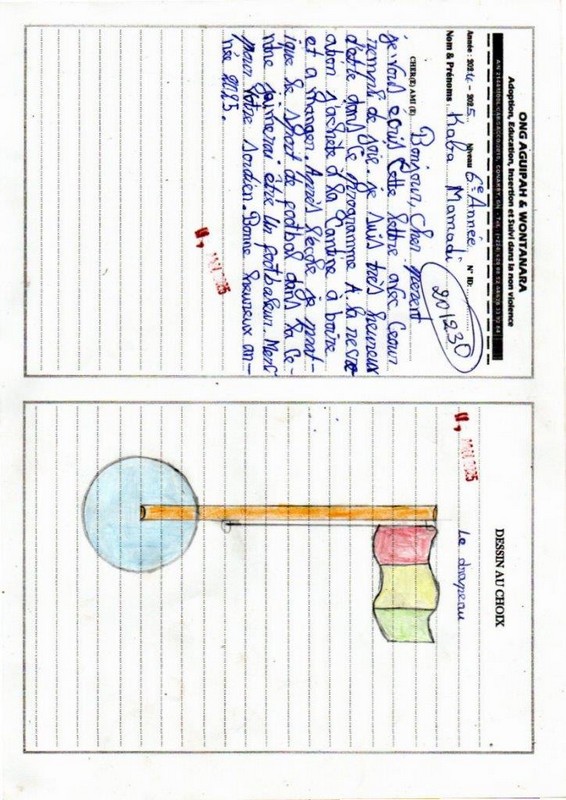 ONG AGUIPAH & WONTANARA
Adoption, Education, Insertion et Suivi dans la non violence
Année : 2024 - 2025 Niveau 6e Année N° ID:
Nom & Prénoms : Kaba Mamadi
201230
CHER(E) AMI (E) Bonjour, Cher parent
je vous écris cette lettre avec Cœur
rempli de joie. je suis très heureux
d'être dans le programme A. la récré-
ation j'achète à la Cantine à boire
et a manger. Après l'école je prat-
ique le sport de football dans la Co-
ntre j'aimerai être un footballeur. Merci
pour votre soutien. Bonne heureuse an-
née 2025.
DESSIN AU CHOIX
Le drapeau